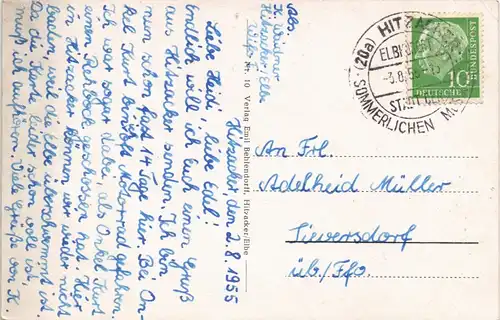 Abs.
K. Weidner
Hitzacker/Elbe
Hitzacker den 2.8.1955
Liebe Heidi, liebe Edel!
Endlich will ich Euch einen Gruß
aus Hitzacker senden. Ich bin
nun schon fast 14 Tage hier. Bei On-
kel Kurt Motorrad gefahren.
Ich war sogar dabei, als Onkel Kurt
einen Rehbock geschossen hat. Hier
in Hitzacker können wir wieder nicht
baden, weil die Elbe überschwemmt ist.
Da die Karte leider schon voll ist,
muß ich aufhören. Viele Grüße von K.
Nr. 10 Verlag Emil Behlendorff, Hitzacker/Elbe
(20a) HITZACKER
ELBE
-3.8.55
SOMMERLICHEN
DEUTSCHE BUNDESPOST
10
An Frl.
Adelheid Müller
Sieversdorf
üb./Ffo.